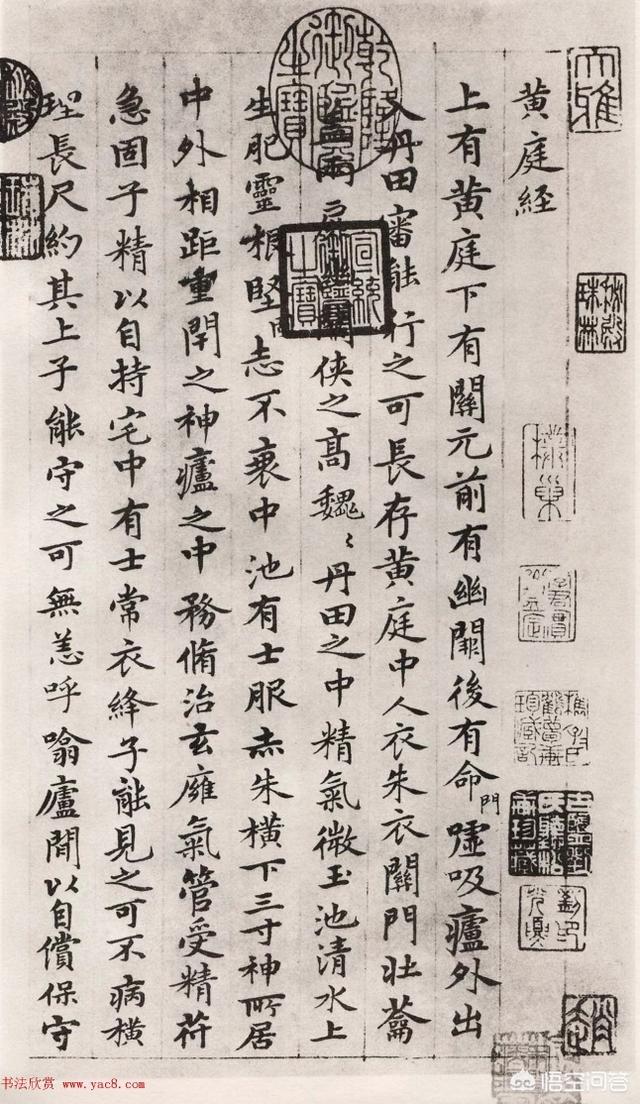 黄庭経
上有黄庭下有關元前有幽闕後有命門嘘吸廬外出
入丹田審能行之可長存黄庭中人衣朱衣關門壮蘥
蓋兩扉幽闕侠之高魏〻丹田之中精氣微玉池清水上
生肥靈根堅志不衰中池有士服赤朱横下三寸神所居
中外相距重閇之神廬之中務脩治玄癕氣管受精符
急固子精以自持宅中有士常衣絳子能見之可不病横
理長尺約其上子能守之可無恙呼噏廬間以自償保守
大雅
秘殿珠林
乾隆御覽之寶
宣統御覽之寶
书法欣赏 www.yac8.com
悟空问答